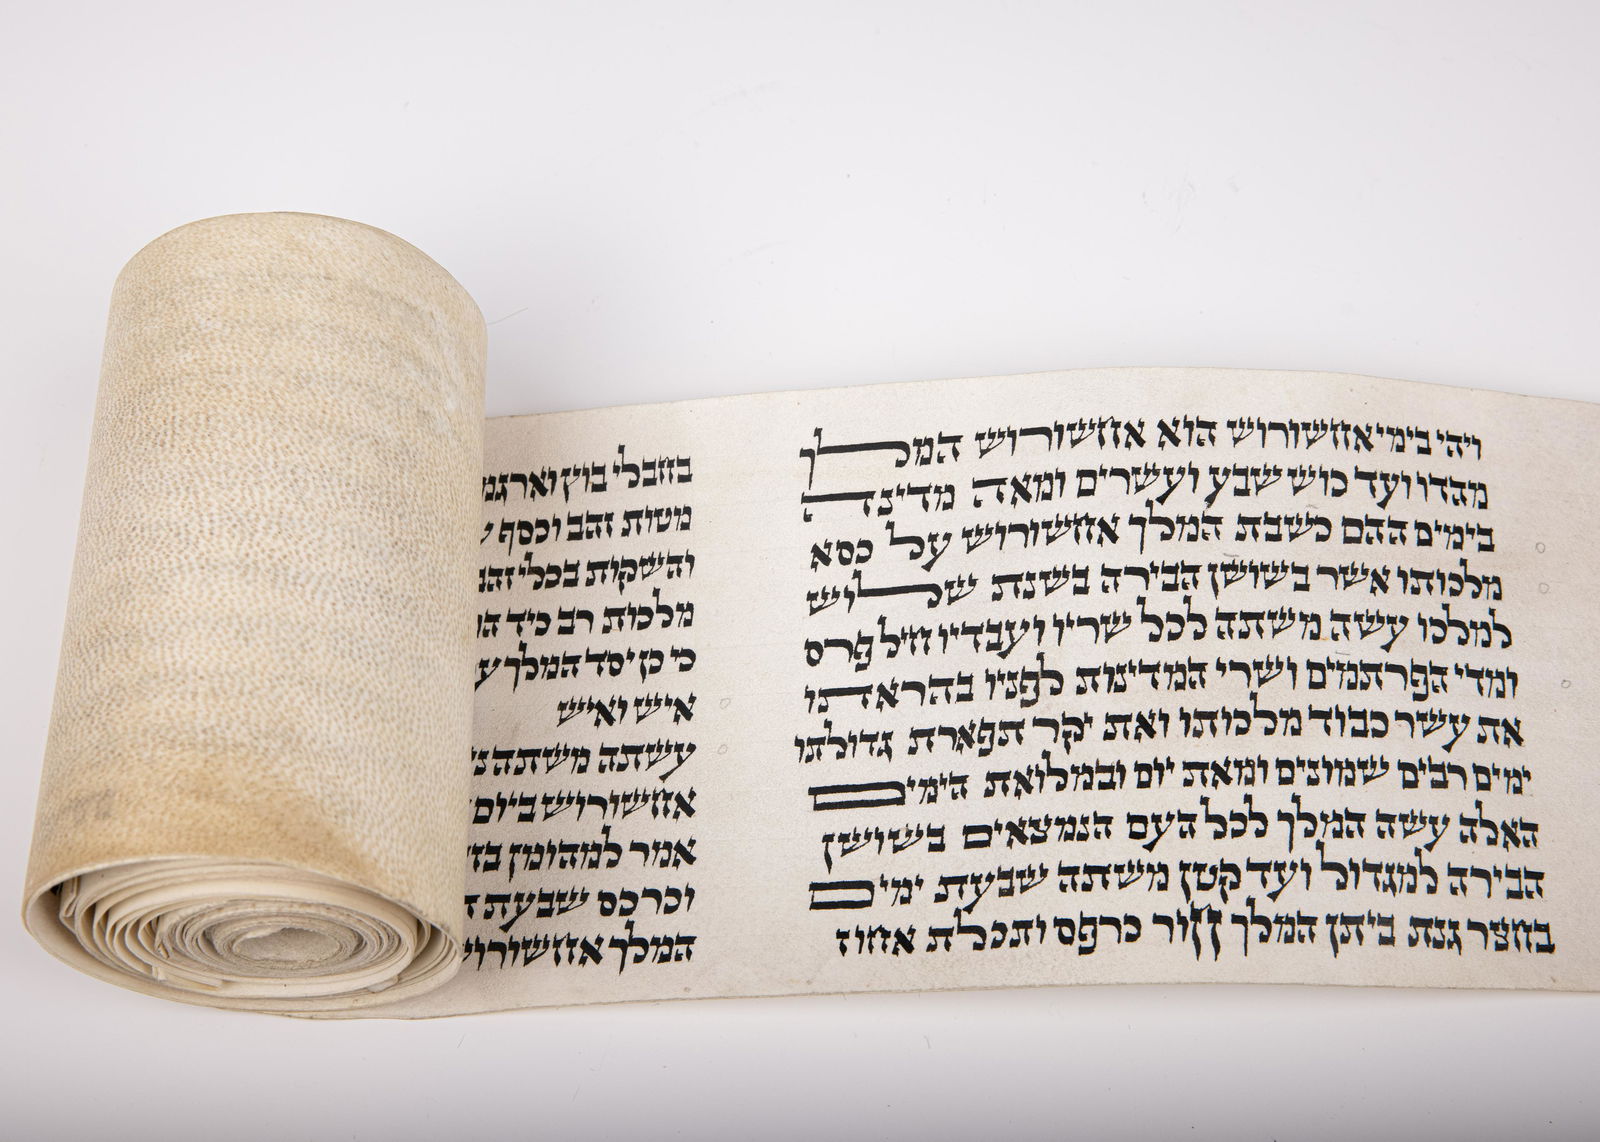 ויהי בימי אחשורוש הוא אחשורוש המלך
מהדו ועד כוש שבע ועשרים ומאה מדינה
בימים ההם כשבת המלך אחשורוש על כסא
מלכותו אשר בשושן הבירה בשנת שלוש
למלכו עשה משתה לכל שריו ועבדיו חיל פרס
ומדי הפרתמים ושרי המדינות לפניו בהראתו
את עשר כבוד מלכותו ואת יקר תפארת גדולתו
ימים רבים שמונים ומאת יום ובמלואת הימים
האלה עשה המלך לכל העם הנמצאים בשושן
הבירה למגדול ועד קטן משתה שבעת ימים
בחצר גנת ביתן המלך חור כרפס ותכלת אחוז
בחבלי בוץ
מטות זהב וכסף
והשקות בכלי
מלכות רב כיד
כי כן יסד המלך
איש ואיש
עשתה משתה
אחשורוש ביום
אמר למהומן
וכרכס שבעת
המלך